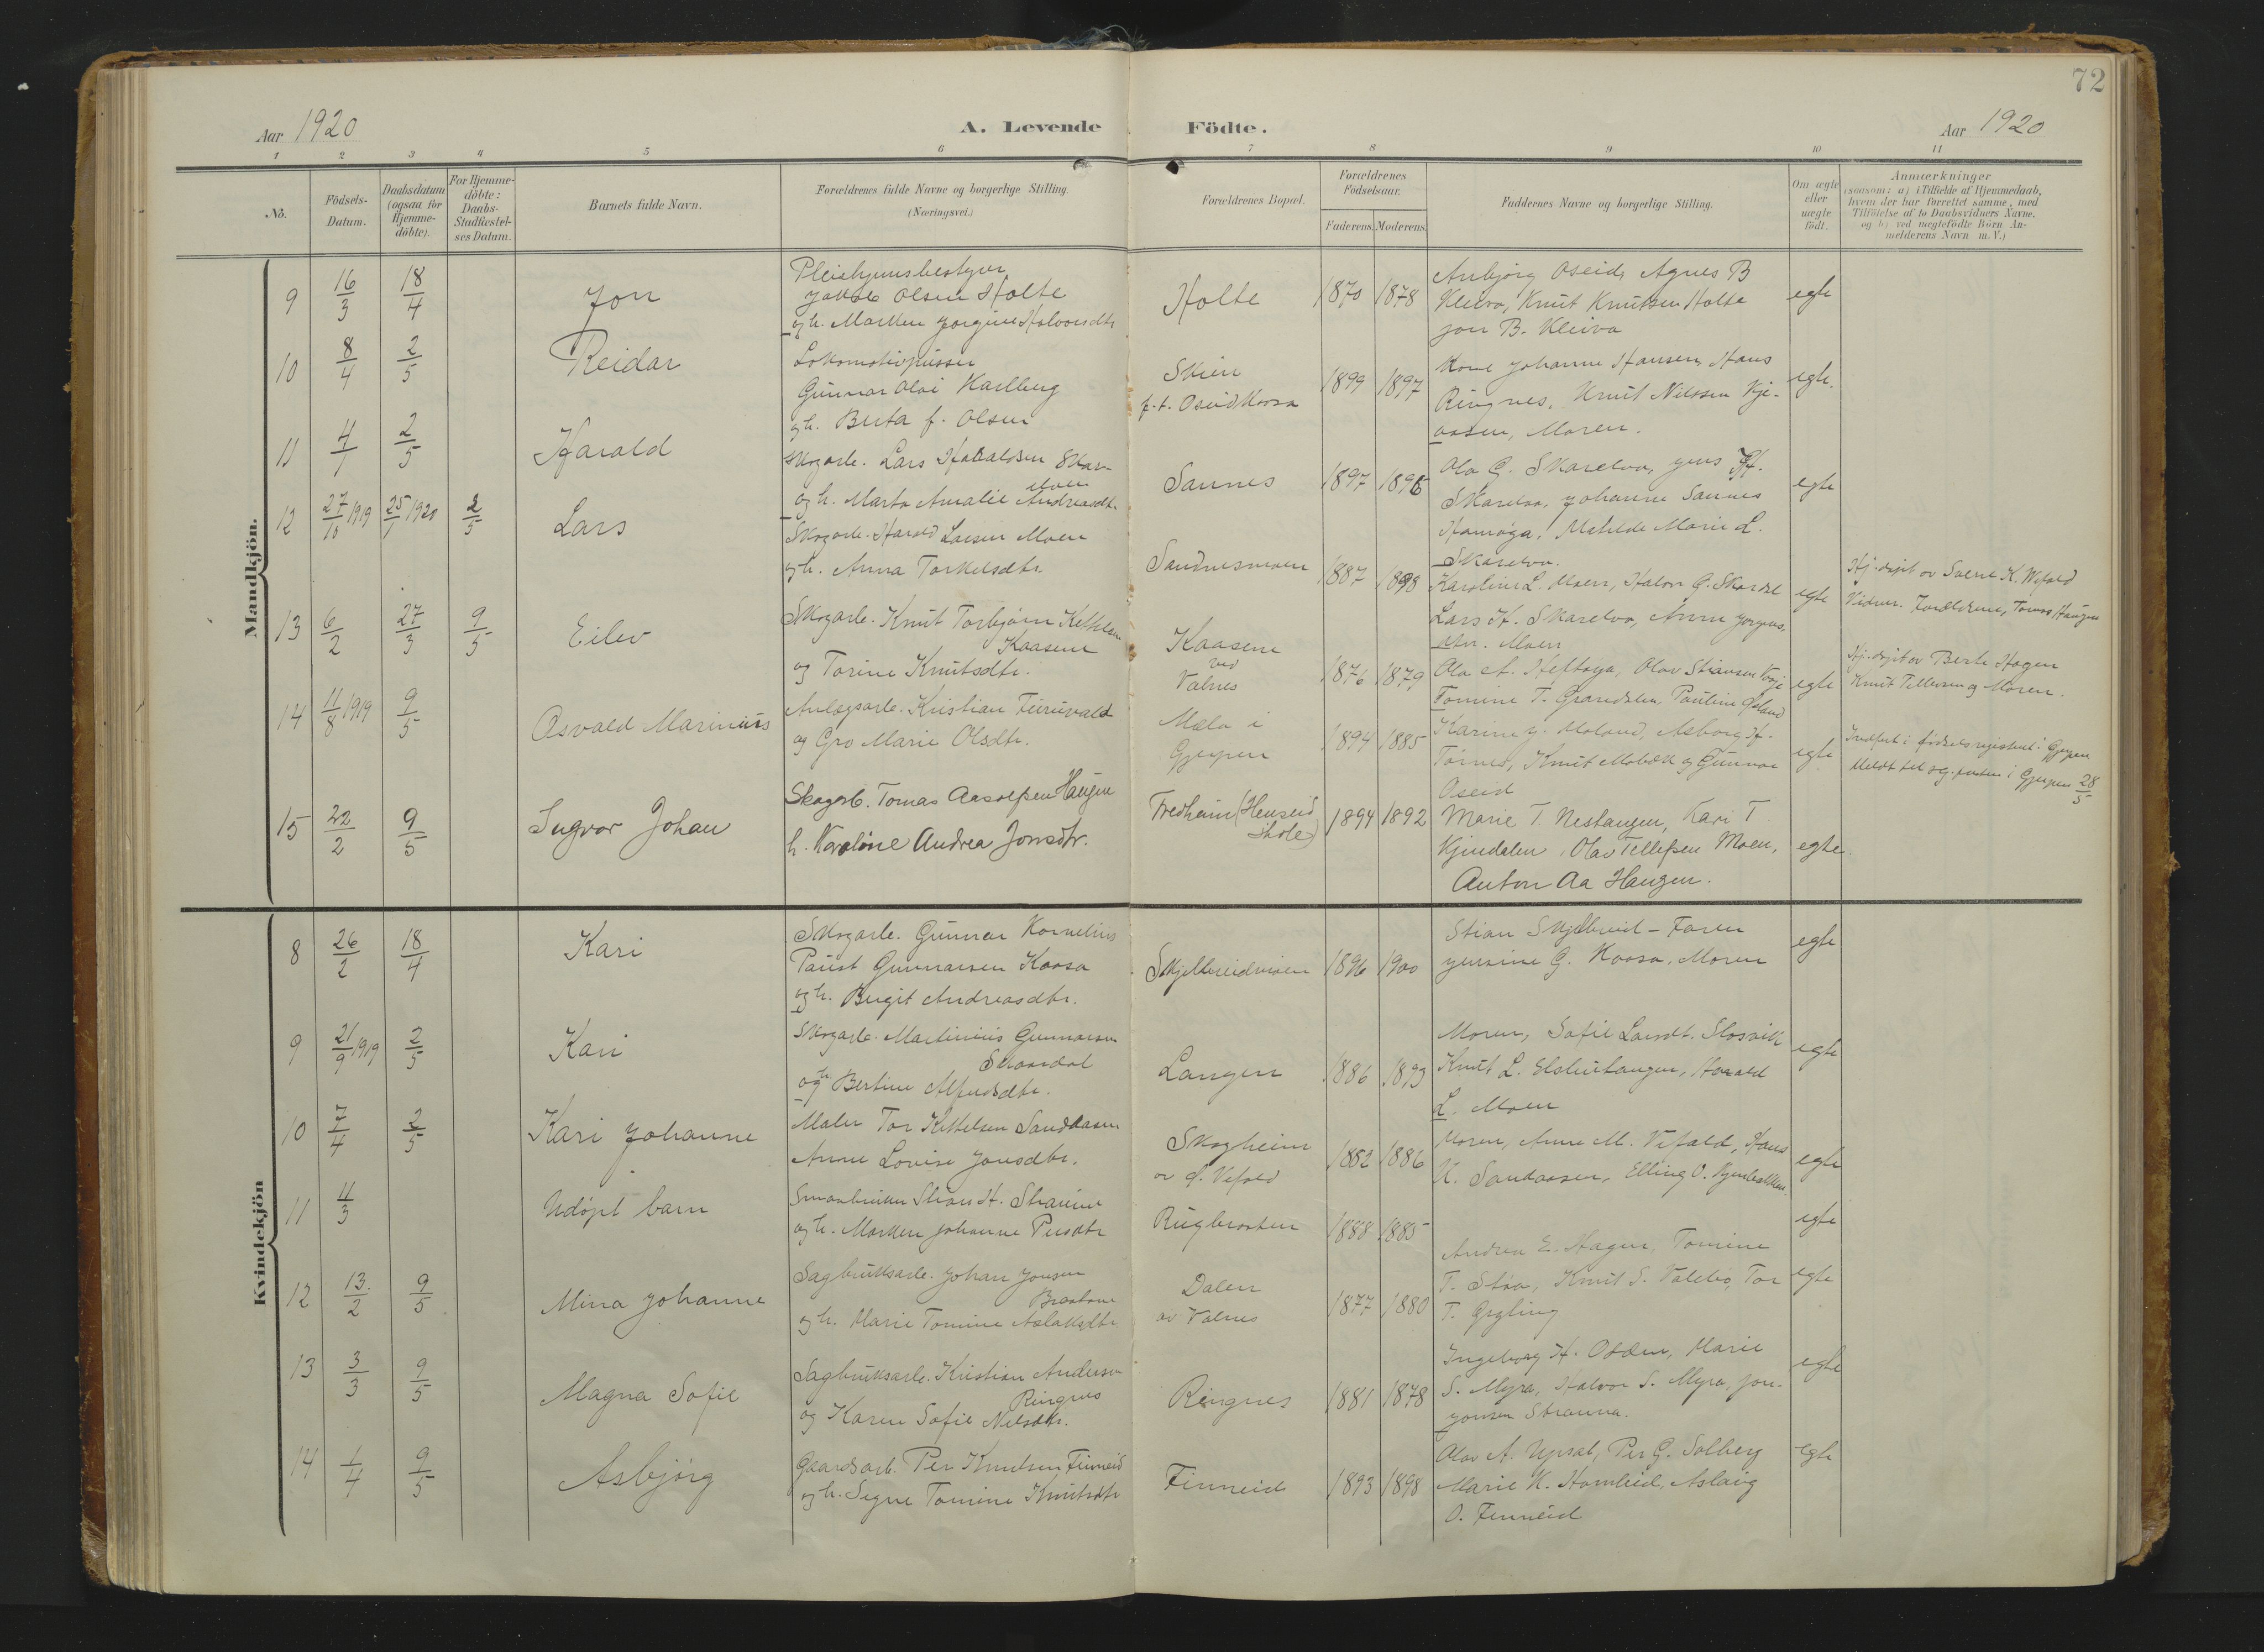 72
Aar 1920 A. Levende Födte. Aar 1920
1 2 3 4 5 6 7 8 9 10 11
No. Födsels-Datum. Daabsdatum (ogsaa for Hjemme-döbte). For Hjemme-döbte: Daabs-Stadfæstel-ses Datum. Barnets fulde Navn. Forældrenes fulde Navne og borgerlige Stilling. (Næringsvei.) Forældrenes Bopæl. Forældrenes Födselsaar. Faderens. Moderens. Faddernes Navne og borgerlige Stilling. Om ægte eller uægte födt. Anmærkninger (saasom: a) i Tilfælde af Hjemmedaab, hvem der har forrettet samme, med Tilföielse af to Daabsvidners Navne. og b) ved uægtefödte Börn An-melderens Navn m. V.)
Mandkjön.
9 16/3 18/4 Jon
Pleiehjemsbestyrer
Olsen Holte
og h. Marken Jorgine Halvorsdtr
Holte 1870 1878
Anbjørg Oseid, Agnes B
Kleiva, Knut Knutsen Holte
Jon B. Kleiva
egte
10 8/4 2/5 Reidar
Lokomotivpusser
Gunnar Olai Karlberg
og h. Berta f. Olsen
Skien
p.t. Oseid Kaasa
1899 1897
Kone Johanne Hansen, Hans
Ringnes, Knut Nilssen Kje-
aasen, Moren.
egte.
11 4/1 2/5 Harald
Skogarb. Lars Haraldsen Skar-
elven
og h. Marta Amalie Andreasdtr.
Sannes 1897 1896
Ola G. Skarelva, Jens H.
Skarelva, Johanne Sannes
Matilde Marie L.
Skarelva.
egte
12 27/10 1919 25/1 1920 2/5 Lars
Skogarb. Harald Larsen Moen
og h. Anna Torkelsdtr.
Sandnesmoen 1887 1898
Karoline L. Moen, Halvor G. Skardal
Lars H. Skarelva, Anne Jørgens-
dtr. Moen
egte
Hj. døpt av Sverre K. Vefald
Vidner. Forældrene, Tomas Haugen
13 6/2 27/3 9/5 Eilev
Skogarb. Knut Torbjørn Kettilsen
Kaasene
og Torine Knutsdtr.
Kaasene
ved
Valnes
1876 1879
Ola A. Heftøya, Olav Stiansen
Tomine T. Grandalen, Pauline Øiland
egte
Hj. døpt av Berte Hagen
Knut Tellevsen og Moren.
14 11/8 1919 9/5 Osvald Marinius
Anlægsarb. Kristian
og Gro Marie Olsdtr.
Mæla i
Gjerpen
1894 1885
Karin G. Moland, Asborg H.
Tørnes, Knut Mobæk og Gunnar
Oseid
egte
Indført i fødselsregisteret i Gjerpen
Meldt til sog.presten i Gjerpen 28/5
15 22/2 9/5 Ingvar Johan
Skogarb. Tomas Aasolfsen Haugen
h. Karoline Andrea Jonsdtr.
Fredheim (Henseid
skole)
1894 1892
Marie T. Nestangen, Kari T.
Kjendalen, Olav Tellefsen Moen,
Anton Aa Haugen.
egte.
Kvindekjön
8 26/2 18/4 Kari
Skogarb. Gunnar Kornelius
Paust Gunnarsen Kaasa
og h. Birgit Andreasdtr.
Skjelbreidmoen 1896 1900
Stian Skjelbreid - Faren
Jensine G. Kaasa, Moren
egte
9 21/9 1919 2/5 Kari
Skogarb. Martinius Gunnarsen
Skaardal
og h Bertine Alfredsdtr.
Langen 1886 1893
Moren, Sofie Larsdt. Slosvik
Knut L. Elshustangen, Harald
L. Moen
egte
10 7/4 2/5 Kari Johanne
Maler Tor Kittelsen Sandaasen
Anne Lovise Jonsdtr.
Skogheim
av S. Vefald
1882 1886
Moren, Anne M. Vefald, Hans
K. Sandaasen, Elling O. Kjenbakken.
egte
11 4/3 Udøpt barn
Smaabruker Stian H. Straume
og h. Marken Johanne Persdtr
Rugbraaten 1888 1885
egte
12 13/2 9/5 Mina Johanne
Sagbruksarb. Johan Jonsen
Braatane
og h. Marie Tomine Aslaksdtr
Dalen
av Valnes
1877 1880
Andrea E. Hagen, Tomine
T. Støa, Knut S. Valebø, Tor
T. Grgling
egte
13 3/3 9/5 Magna Sofie
Sagbruksarb. Kristian Andersen
Ringnes
og Karen Sofie Nilsdtr.
Ringnes 1881 1878
Ingeborg H. Odden, Marie
S. Myra, Halvor S. Myra, Jon
Jonsen Strauna.
egte
14 1/4 9/5 Asbjörg
Gaardsarb. Per Knutsen Finneid
og h. Signe Tomine Knutsdtr
Finneid 1893 1898
Olav A. Upsal, Per G. Solberg
Marie K. Homleid, Aslaug
O. Finneid
egte